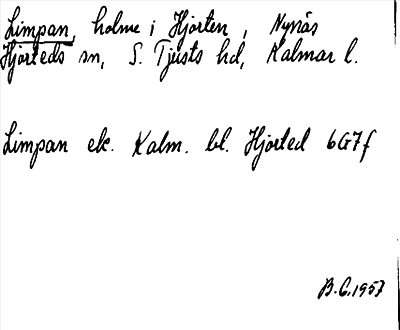 Limpan, holme i Hjorten, Nynäs
Hjorteds sn, S. Tjusts hd, Kalmar l.
Limpan ek. Kalm. bl. Hjorted 6G7f
B.G. 1957